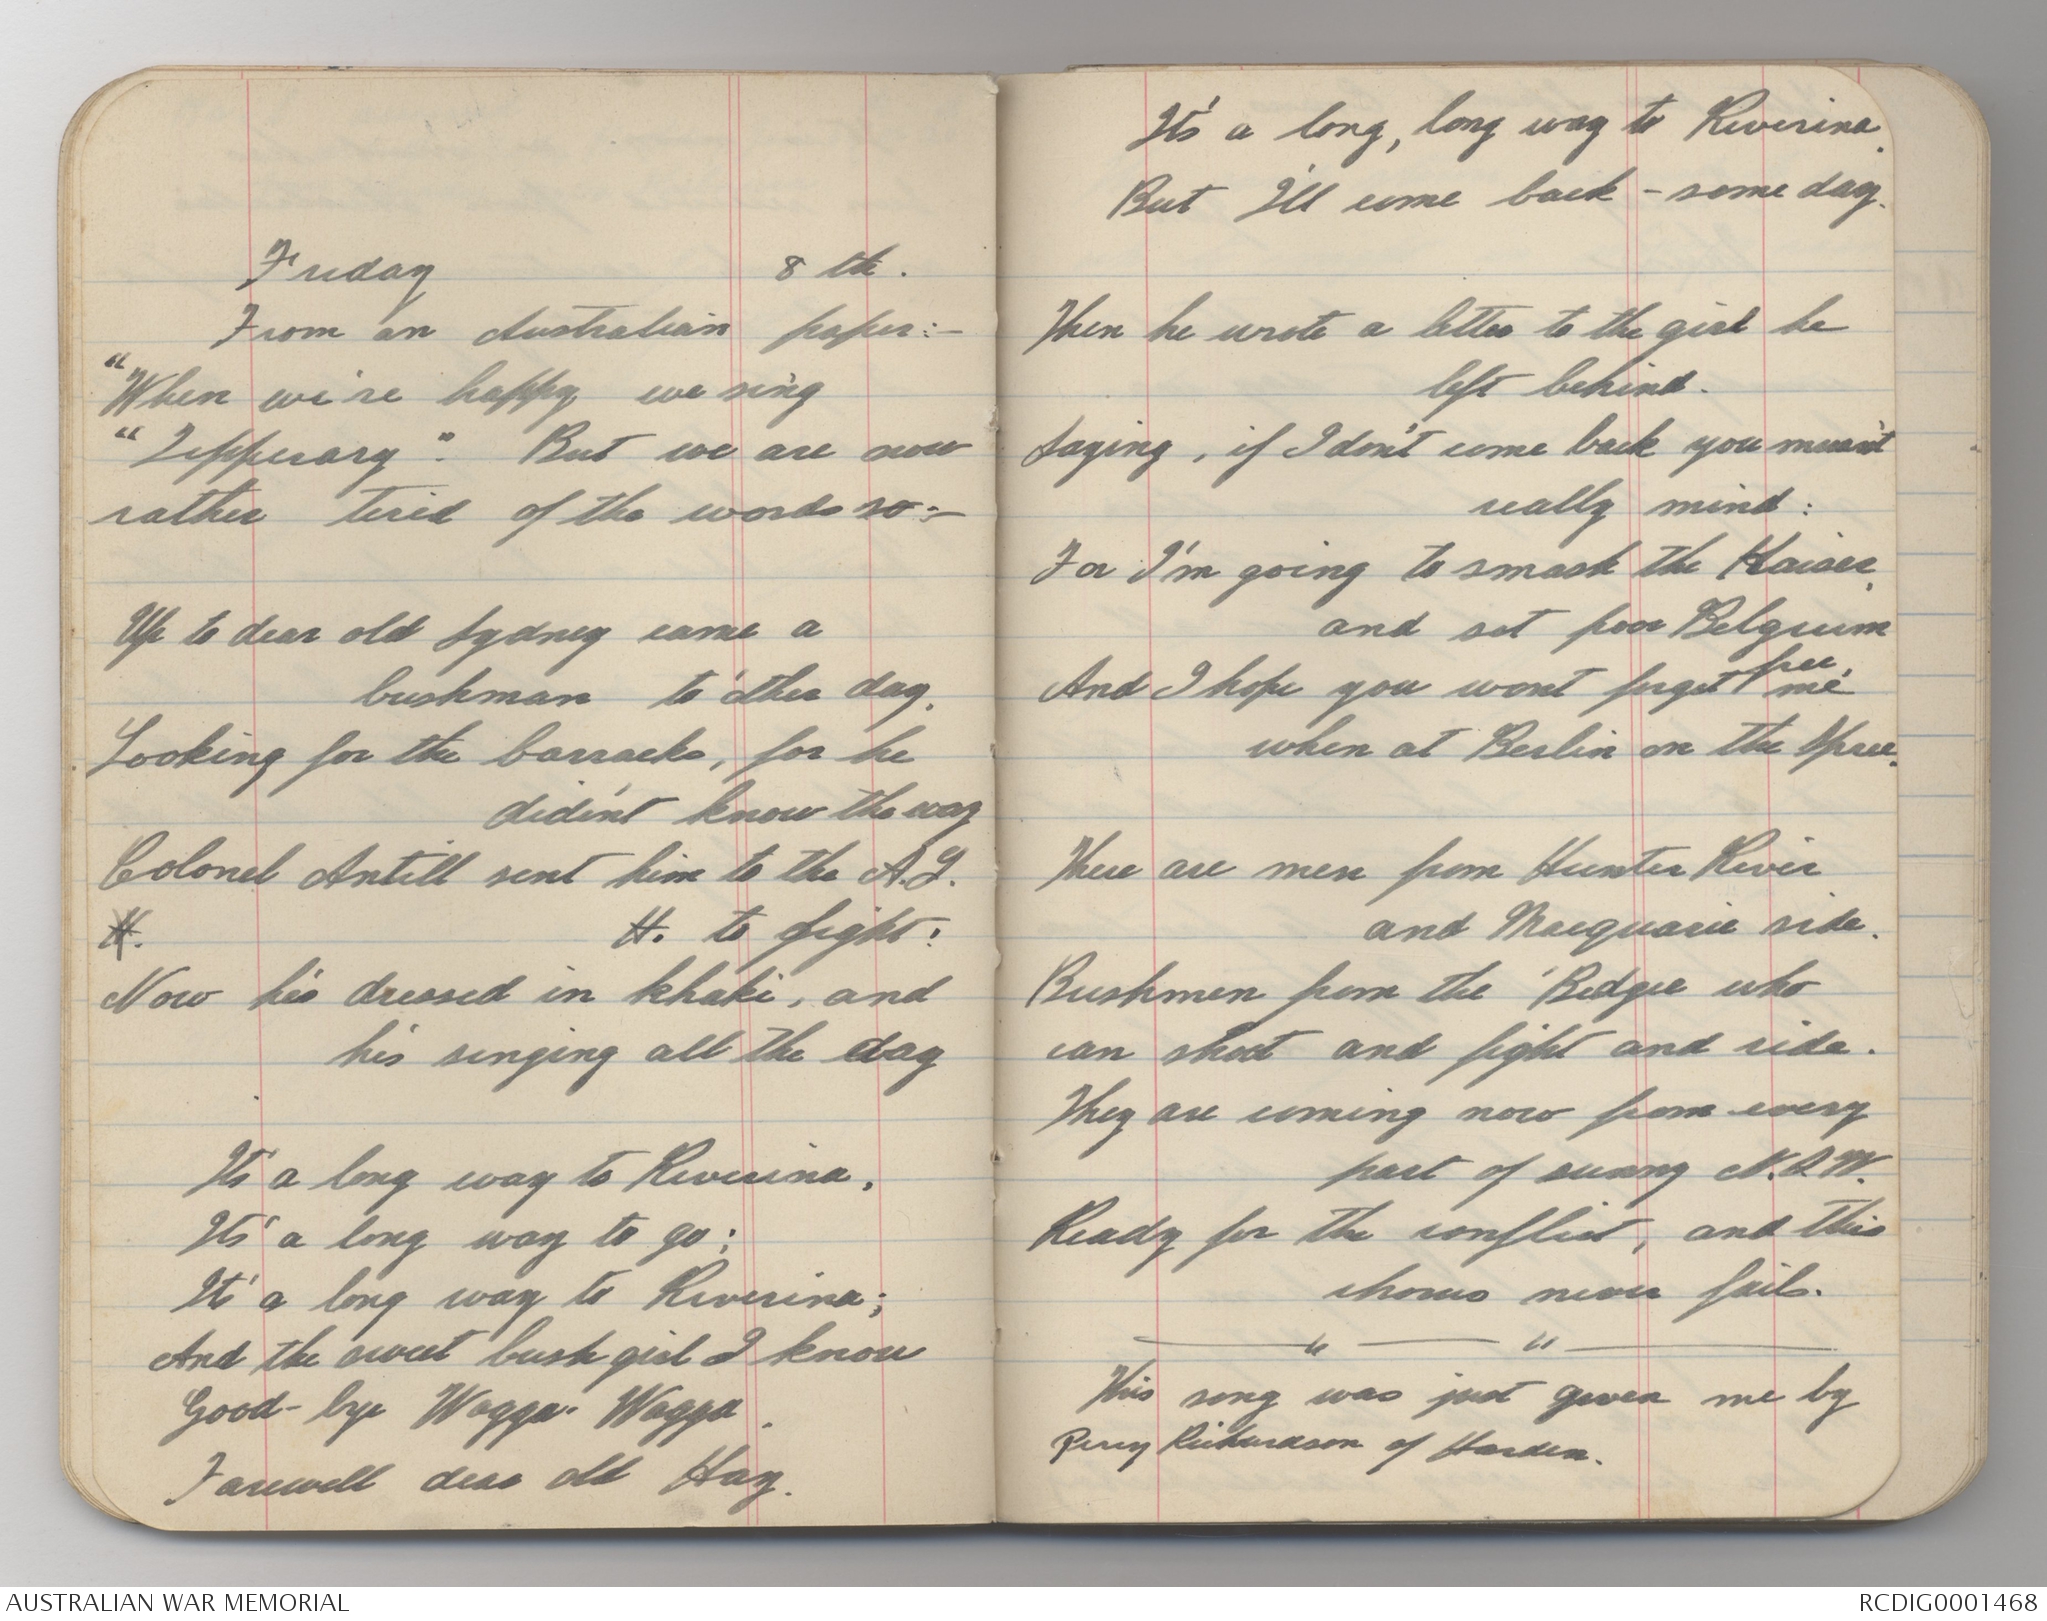 Friday 8th.
From an Australian paper:-
"When we're happy we sing
"Tipperary". But we are now
rather tired of the words so:-
Up to dear old Sydney came a
bushman to other day.
Looking for the barracks, for he
didin't know the way
Colonel Antill sent him to the A.L.
H. H. to fight:
Now he's dressed in khaki, and
he's singing all the day
It's a long way to Riverina,
It's a long way to go;
It's a long way to Riverina;
And the sweet bush girl I know
Good-bye Wagga-Wagga.
Farewell dear old Hay.
It's a long, long way to Riverina,
But I'll come back - some day.
Then he wrote a letter to the girl he
left behind.
Saying, if I don't come back you musn't
really mind:
For I'm going to smash the Kaiser,
and set poor Belguim
free,
And I hope you wont forget me
when at Berlin on the Spree.
There are men from Hunter River
and Macquarie side.
Bushmen from the 'Bidgee who
can shoot and fight and ride.
They are coming now from every
part of sunny N.S.W.
Ready for the conflict, and this
chorus never fails.
" "
This song was just given me by
Percy Richardson of Harden.
AUSTRALIAN WAR MEMORIAL
RCDIG0001468